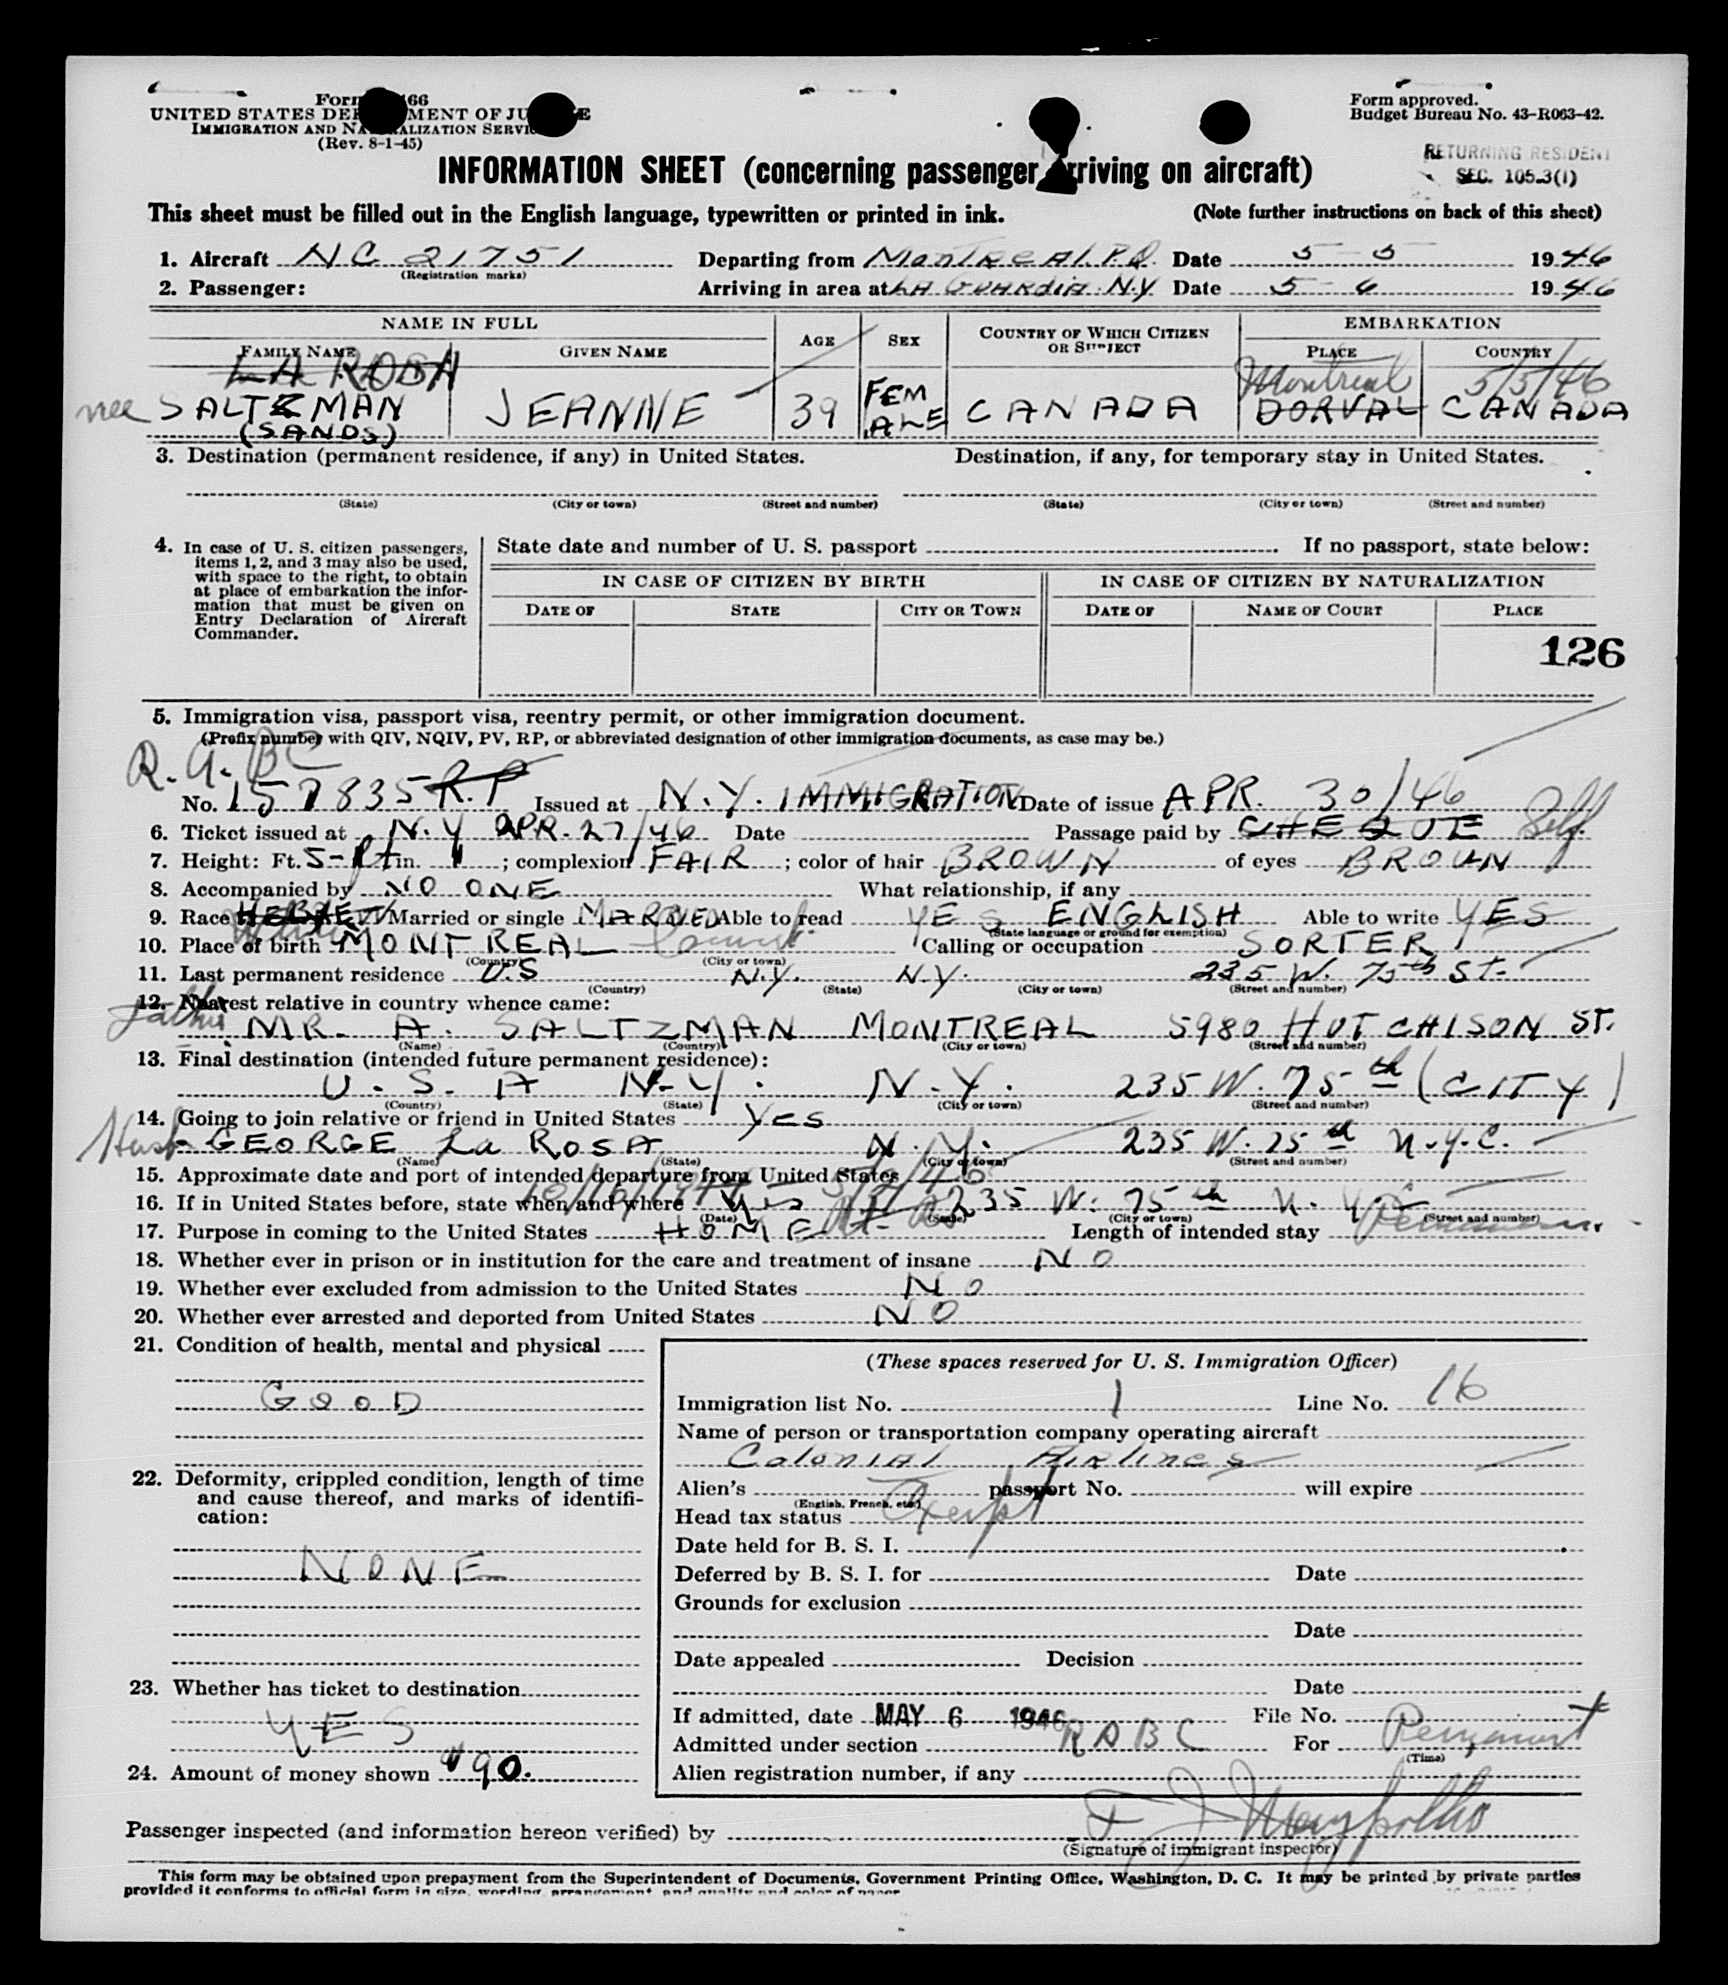 UNITED STATES
IMMIGRATION AND
(Rev. 8-1-45)
Form approved.
Budget Bureau No. 43-R063-42.
RETURNING RESIDENT
SEC. 105.3(1)
INFORMATION SHEET (concerning passenger arriving on aircraft)
This sheet must be filled out in the English language, typewritten or printed in ink. (Note further instructions on back of this sheet)
1. Aircraft NC 21751 Departing from Montreal. P.Q. Date 5-5 1946
(Registration marks)
2. Passenger: Arriving in area at LA GUARDIA. N.Y Date 5-6 1946
NAME IN FULL AGE SEX COUNTRY OF WHICH CITIZEN OR SUBJECT EMBARKATION
FAMILY NAME GIVEN NAME PLACE COUNTRY
LA ROSA Montreal 5/5/46
nee SALTZMAN JEANNE 39 FEMALE CANADA DORVAL CANADA
(SANDS)
3. Destination (permanent residence, if any) in United States. Destination, if any, for temporary stay in United States.
(State) (City or town) (Street and number) (State) (City or town) (Street and number)
4. In case of U. S. citizen passengers, items 1, 2, and 3 may also be used, with space to the right, to obtain at place of embarkation the information that must be given on Entry Declaration of Aircraft Commander.
State date and number of U. S. passport If no passport, state below:
IN CASE OF CITIZEN BY BIRTH IN CASE OF CITIZEN BY NATURALIZATION
DATE OF STATE CITY OR TOWN DATE OF NAME OF COURT PLACE
126
5. Immigration visa, passport visa, reentry permit, or other immigration document.
(Prefix number with QIV, NQIV, PV, RP, or abbreviated designation of other immigration documents, as case may be.)
R.A.BC
No. 157835 R.P Issued at N.Y. IMMIGRATION Date of issue APR. 30/46
6. Ticket issued at N.Y APR. 27/46 Date Passage paid by CHEQUE Self
7. Height: Ft. 5-ft in. 1 ; complexion FAIR ; color of hair BROWN of eyes BROWN
8. Accompanied by NO ONE What relationship, if any
9. Race HEBREW White Married or single MARRIED Able to read YES ENGLISH Able to write YES
(State language or ground for exemption)
10. Place of birth MONTREAL Calling or occupation SORTER
(Country) (City or town)
11. Last permanent residence U.S N.Y. N.Y. 235 W. 75th St.
(Country) (State) (City or town) (Street and number)
12. Nearest relative in country whence came:
Father MR. A. SALTZMAN MONTREAL 5980 HUTCHISON ST.
(Name) (Country) (City or town) (Street and number)
13. Final destination (intended future permanent residence):
U.S.A N.Y. N.Y. 235 W. 75th (CITY)
(Country) (State) (City or town) (Street and number)
14. Going to join relative or friend in United States Yes
Husb- GEORGE La ROSA N.Y. 235 W. 75th N.Y.C.
(Name) (State) (City or town) (Street and number)
15. Approximate date and port of intended departure from United States
16. If in United States before, state when and where yes 235 W. 75th N.Y.C
(Date) (State) (City or town) (Street and number)
17. Purpose in coming to the United States HOME Length of intended stay Permanent
18. Whether ever in prison or in institution for the care and treatment of insane NO
19. Whether ever excluded from admission to the United States NO
20. Whether ever arrested and deported from United States NO
21. Condition of health, mental and physical
GOOD
22. Deformity, crippled condition, length of time and cause thereof, and marks of identification:
NONE
23. Whether has ticket to destination
YES
24. Amount of money shown $90.
(These spaces reserved for U. S. Immigration Officer)
Immigration list No. 1 Line No. 16
Name of person or transportation company operating aircraft
Colonial Airlines
Alien's passport No. will expire
(English, French, etc.)
Head tax status Exempt
Date held for B. S. I.
Deferred by B. S. I. for Date
Grounds for exclusion
Date
Date appealed Decision
Date
If admitted, date MAY 6 1946 File No.
Admitted under section RABC For Permanent
(Time)
Alien registration number, if any
Passenger inspected (and information hereon verified) by
(Signature of immigrant inspector)
This form may be obtained upon prepayment from the Superintendent of Documents, Government Printing Office, Washington, D. C. It may be printed by private parties
provided it conforms to official form in size, wording, arrangement, and quality and color of paper.